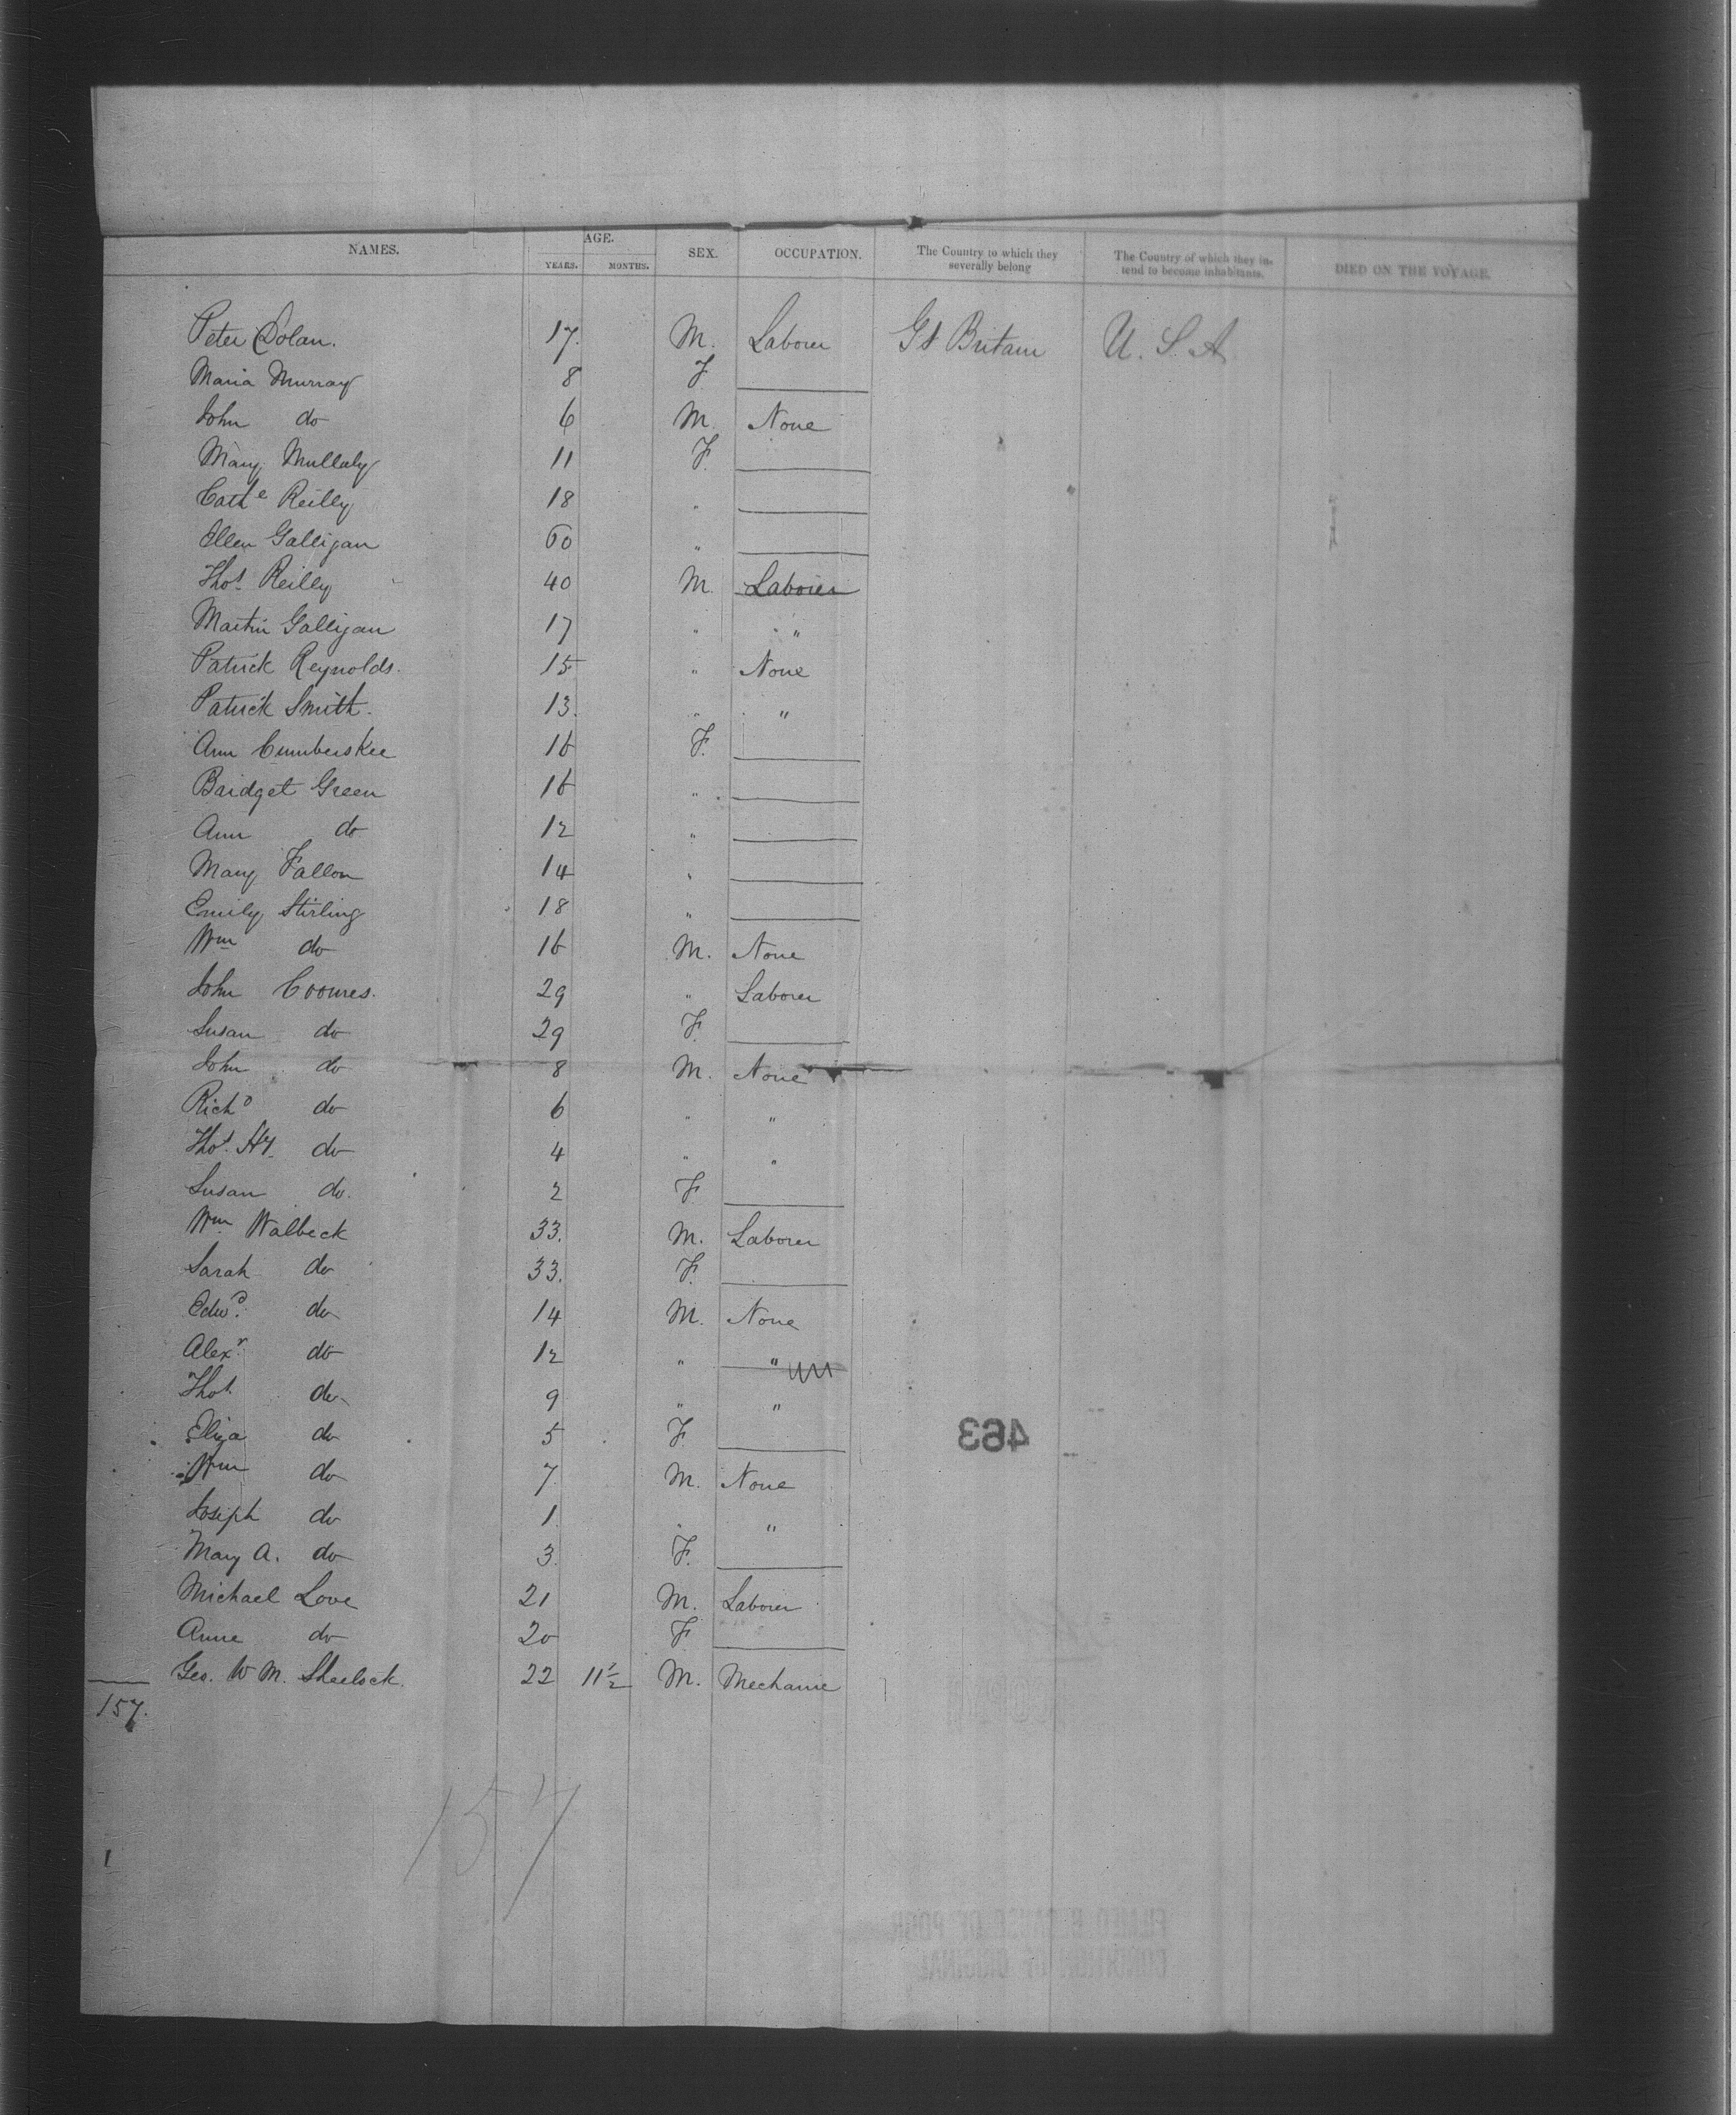 NAMES. AGE. YEARS. MONTHS. SEX. OCCUPATION. The Country to which they severally belong The Country of which they intend to become inhabitants. DIED ON THE VOYAGE.
Peter Dolan. 17. M. Laborer Gt Britain U. S. A
Maria Murray 8 F
John do 6 M. None
Mary Mullaly 11 F.
Cathe Reilly 18 "
Ellen Galligan 60 "
Thos. Reilly 40 M. Laborer
Martin Galligan 17 " "
Patrick Reynolds. 15 " None
Patrick Smith. 13. " "
Ann Cumberskee 16 F.
Bridget Green 16 "
Ann do 12 "
Mary Fallon 14 "
Emily Stirling 18 "
Wm do 16 M. None
John Coomes. 29 " Laborer
Susan do 29 F.
John do 8 M. None
Richd do 6 " "
Thos. Hy. do 4 " "
Susan do. 2 F
Wm Walbeck 33. M. Laborer
Sarah do 33. F.
Edwd. do 14 M. None
Alexr. do 12 " "
Thos. do 9 " "
Eliza do 5 F
Wm do 7 M. None
Joseph do 1 " "
Mary A. do 3. F.
Michael Love 21 M. Laborer
Anne do 20 F
Geo. W M. Sheelock. 22 11½ M. Mechanic
157.
463
157
1
FILMED BECAUSE OF POOR
CONDITION OF ORIGINAL